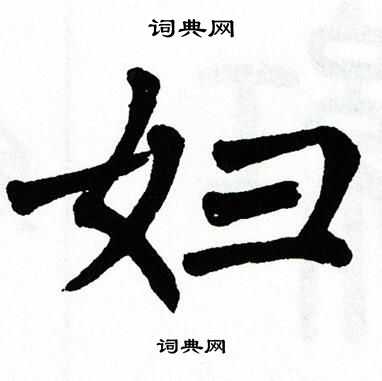 词典网
妇
词典网